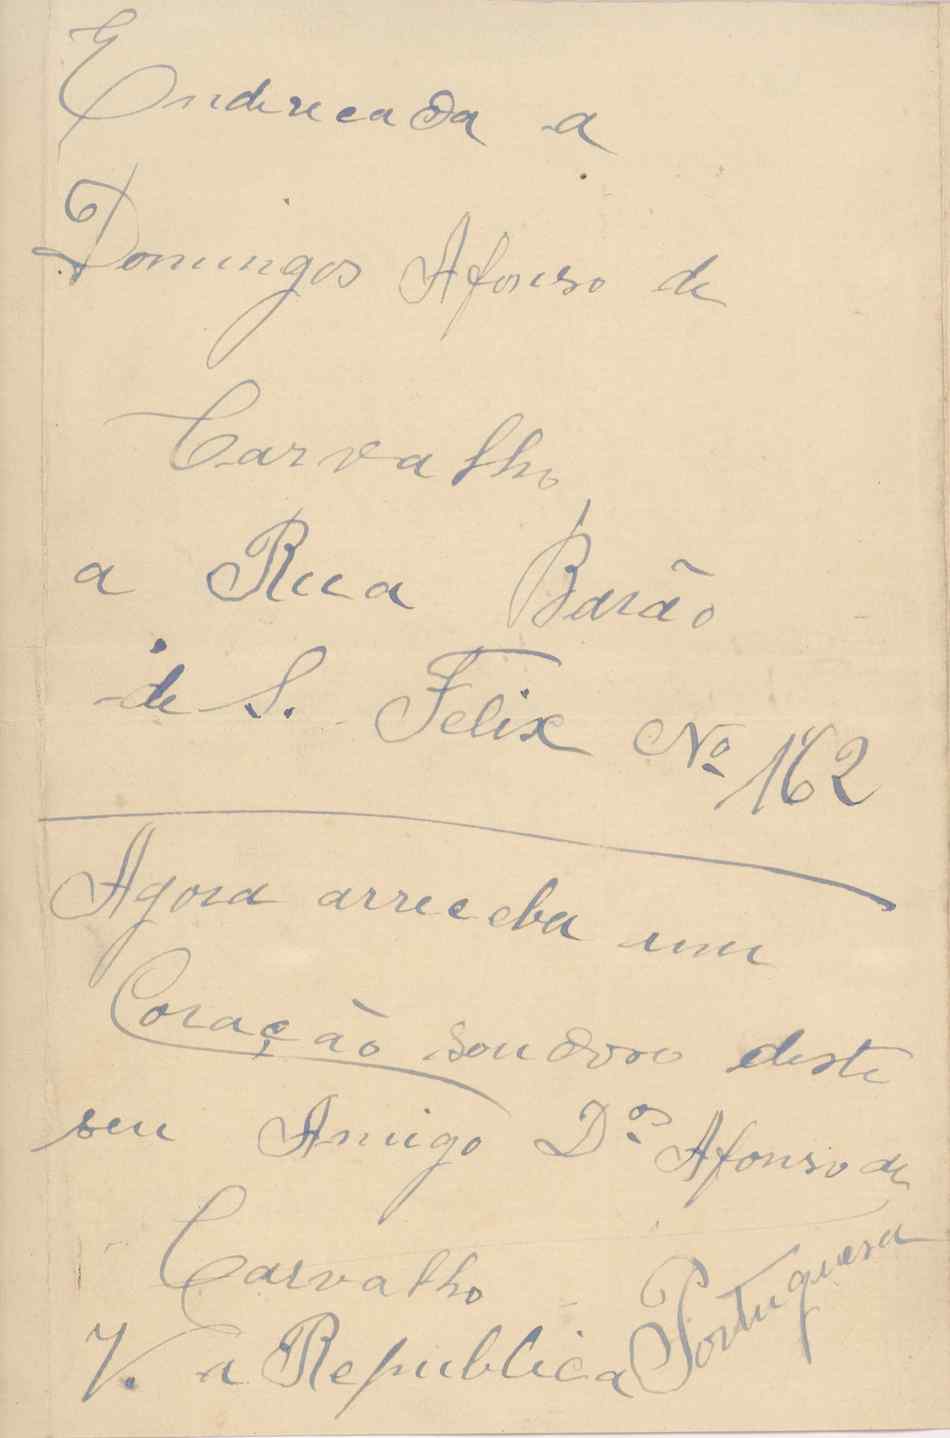 Enderecada a
Domingos Afonso de
Carvalho
a Rua Barão
de S. Felix Nº 162
Agora arreceba um
Coração soudoso deste
seu Amigo Dºs Afonso de
Carvalho
V. a Republica Portuguesa